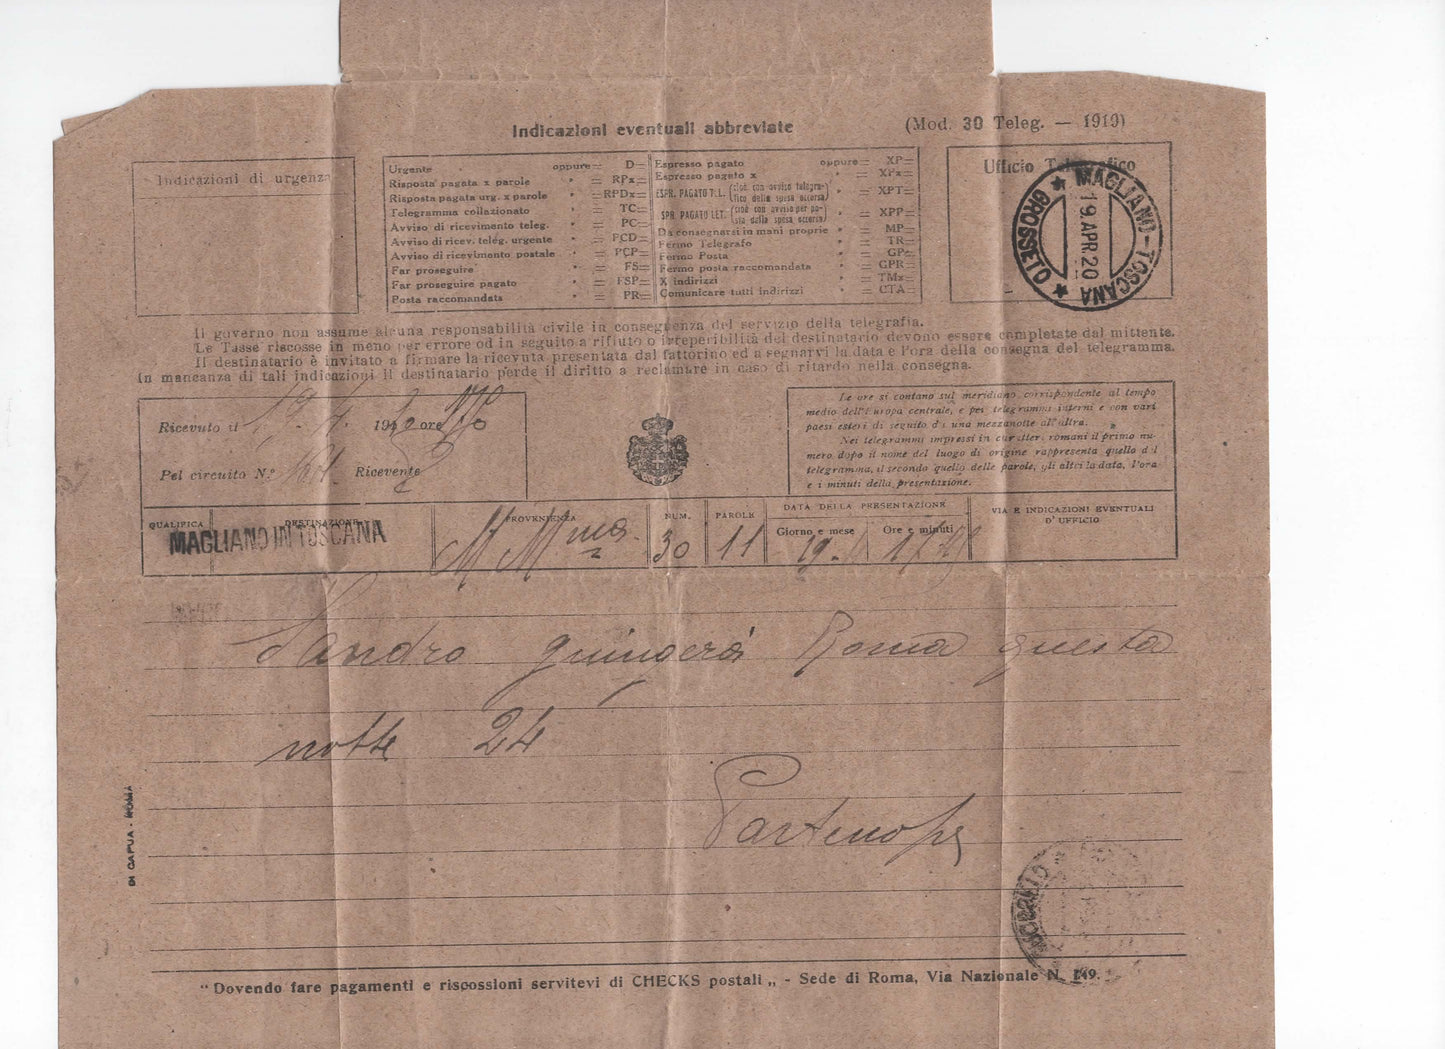 Indicazioni eventuali abbreviate
(Mod. 30 Teleg. — 1919)
Indicazioni di urgenza
Urgente oppure = D=
Risposta pagata x parole " = RPx=
Risposta pagata urg. x parole " =RPDx=
Telegramma collazionato " = TC=
Avviso di ricevimento teleg. " = PC=
Avviso di ricev. teleg. urgente " = PCD=
Avviso di ricevimento postale " = PCP=
Far proseguire " = FS=
Far proseguire pagato " = FSP=
Posta raccomandata " = PR=
Espresso pagato oppure = XP=
Espresso pagato x " = XPx=
ESPR. PAGATO TEL. (cioè con avviso telegra-
fico della spesa occorsa) " = XPT=
ESPR. PAGATO LET. (cioè con avviso per po-
sta della spesa occorsa) " = XPP=
Da consegnarsi in mani proprie " = MP=
Fermo Telegrafo " = TR=
Fermo Posta " = GP=
Fermo posta raccomandata " = GPR=
X indirizzi " = TMx=
Comunicare tutti indirizzi " = CTA=
Ufficio Telegrafico
MAGLIANO-TOSCANA
★ GROSSETO ★
19.APR.20
Il governo non assume alcuna responsabilità civile in conseguenza del servizio della telegrafia.
Le Tasse riscosse in meno per errore od in seguito a rifiuto o irreperibilità del destinatario devono essere completate dal mittente.
Il destinatario è invitato a firmare la ricevuta presentata dal fattorino ed a segnarvi la data e l'ora della consegna del telegramma.
In mancanza di tali indicazioni il destinatario perde il diritto a reclamare in caso di ritardo nella consegna.
Ricevuto il 19 4 1920 ore
Pel circuito N.° Ricevente
Le ore si contano sul meridiano corrispondente al tempo
medio dell'Europa centrale, e pei telegrammi interni e con vari
paesi esteri di seguito da una mezzanotte all'altra.
Nei telegrammi impressi in caratteri romani il primo nu-
mero dopo il nome del luogo di origine rappresenta quello del
telegramma, il secondo quello delle parole, gli altri la data, l'ora
e i minuti della presentazione.
QUALIFICA DESTINAZIONE PROVENIENZA NUM. PAROLE DATA DELLA PRESENTAZIONE VIA E INDICAZIONI EVENTUALI
D'UFFICIO
Giorno e mese Ore e minuti
MAGLIANO IN TOSCANA 30 11 19
Sandro giungerà Roma questa
notte 24
Partenope
DI CAPUA - ROMA
"Dovendo fare pagamenti e riscossioni servitevi di CHECKS postali„ - Sede di Roma, Via Nazionale N. 149.